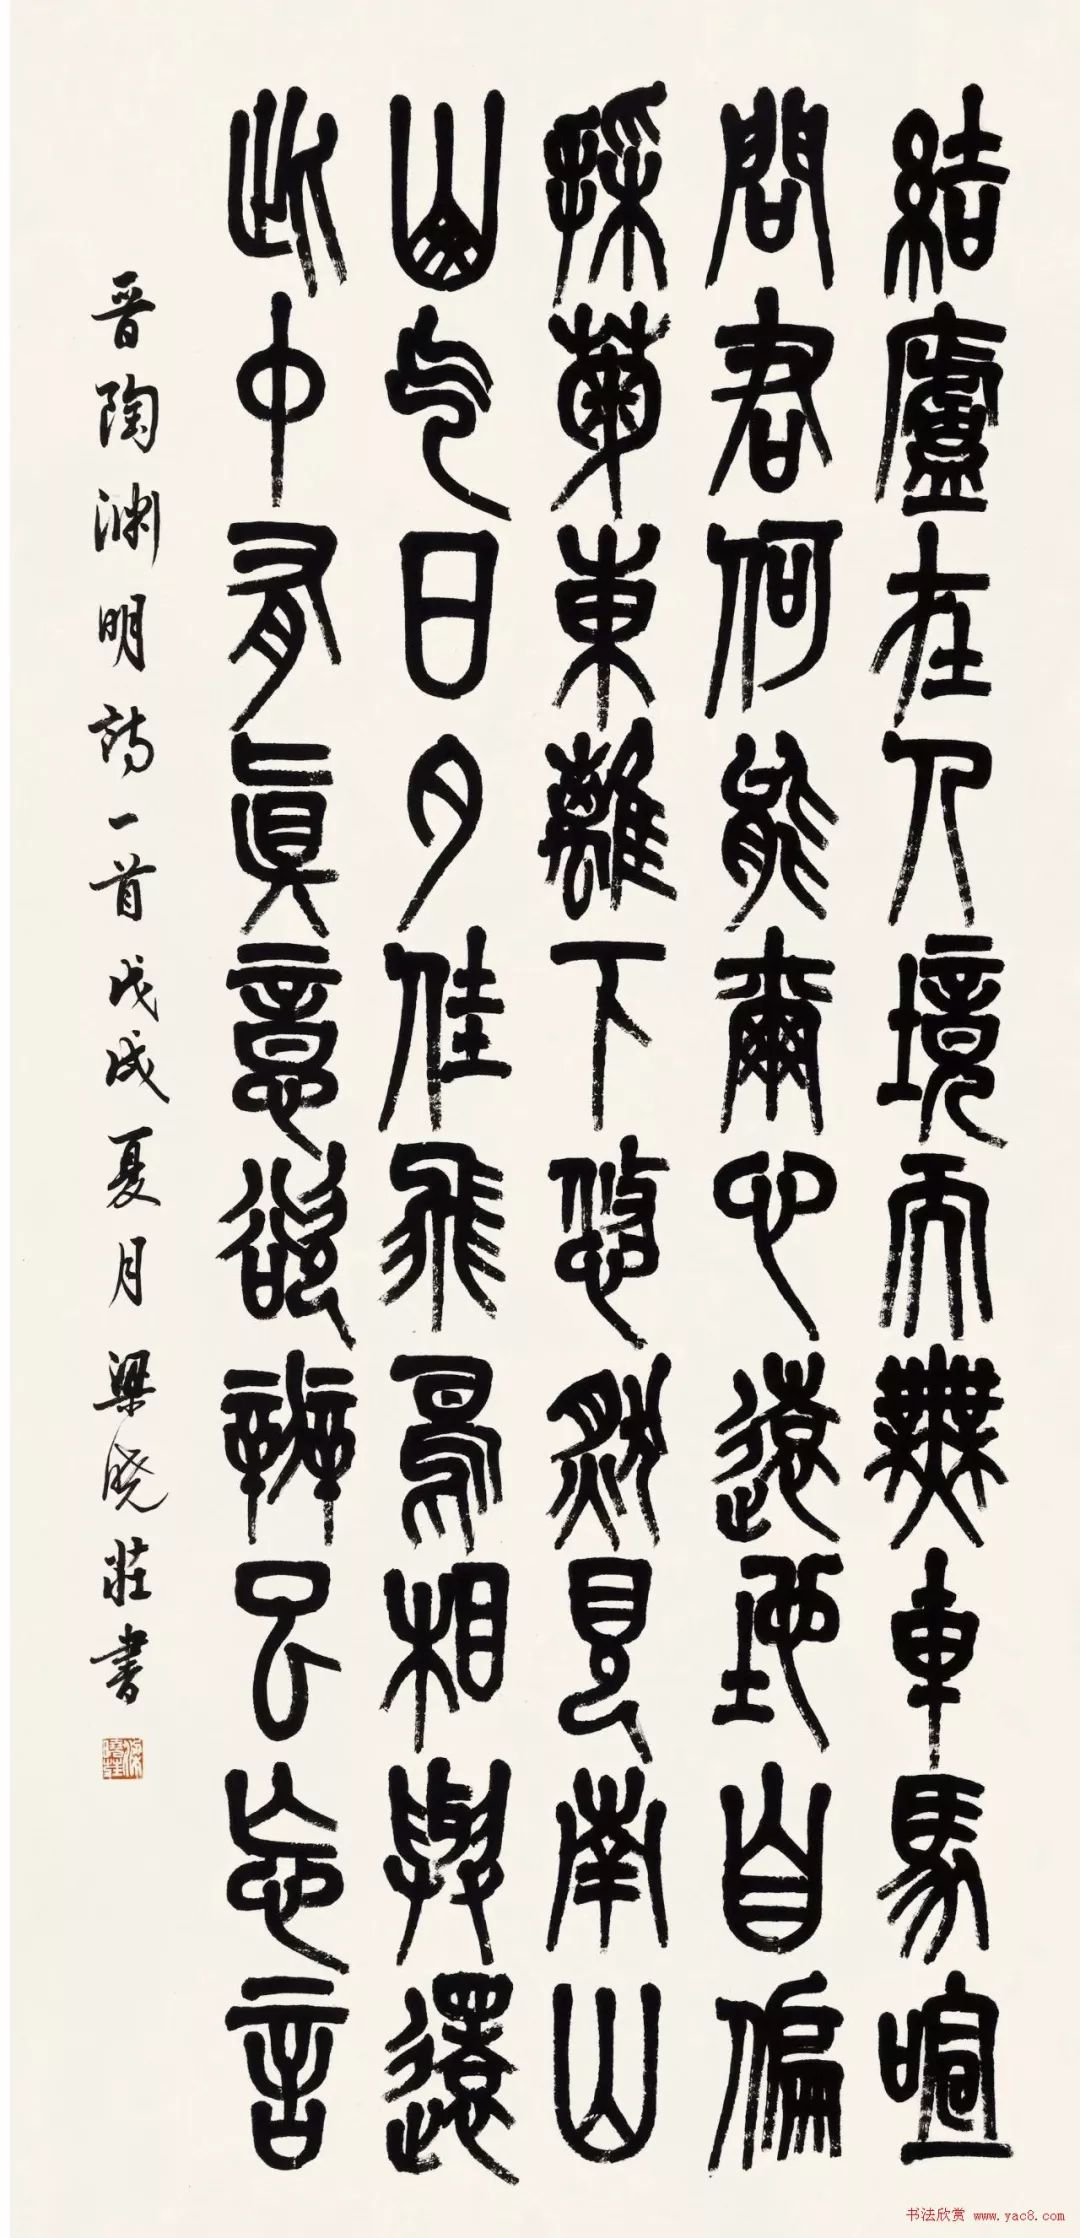 結廬在人境而無車馬喧
問君何能爾心遠地自偏
採菊東離下悠然見南山
山气日夕佳飛鳥相與還
此中有眞意欲辨已忘言
晋陶渊明詩一首戊戌夏月梁晓莊書
书法欣赏 www.yac8.com